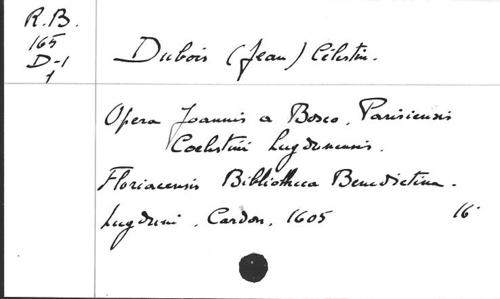 R.B.
165
D-1
1
Dubois (Jean) Célestin.
Opera Joannis a Bosco, Parisiensis
Coelestini Lugdunensis.
Floriacensis Bibliotheca Benedictina.
Lugduni, Cardon, 1605 16°